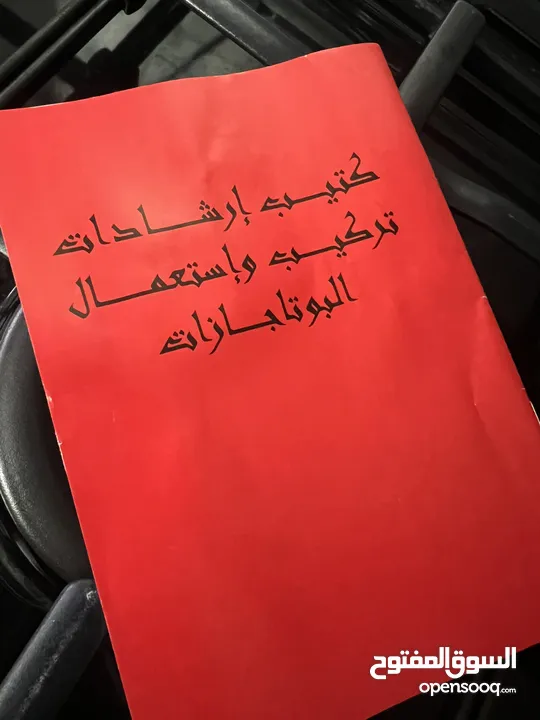 كتيب إرشادات
تركيب وإستعمال
البوتاجازات
السوق المفتوح
opensooq.com